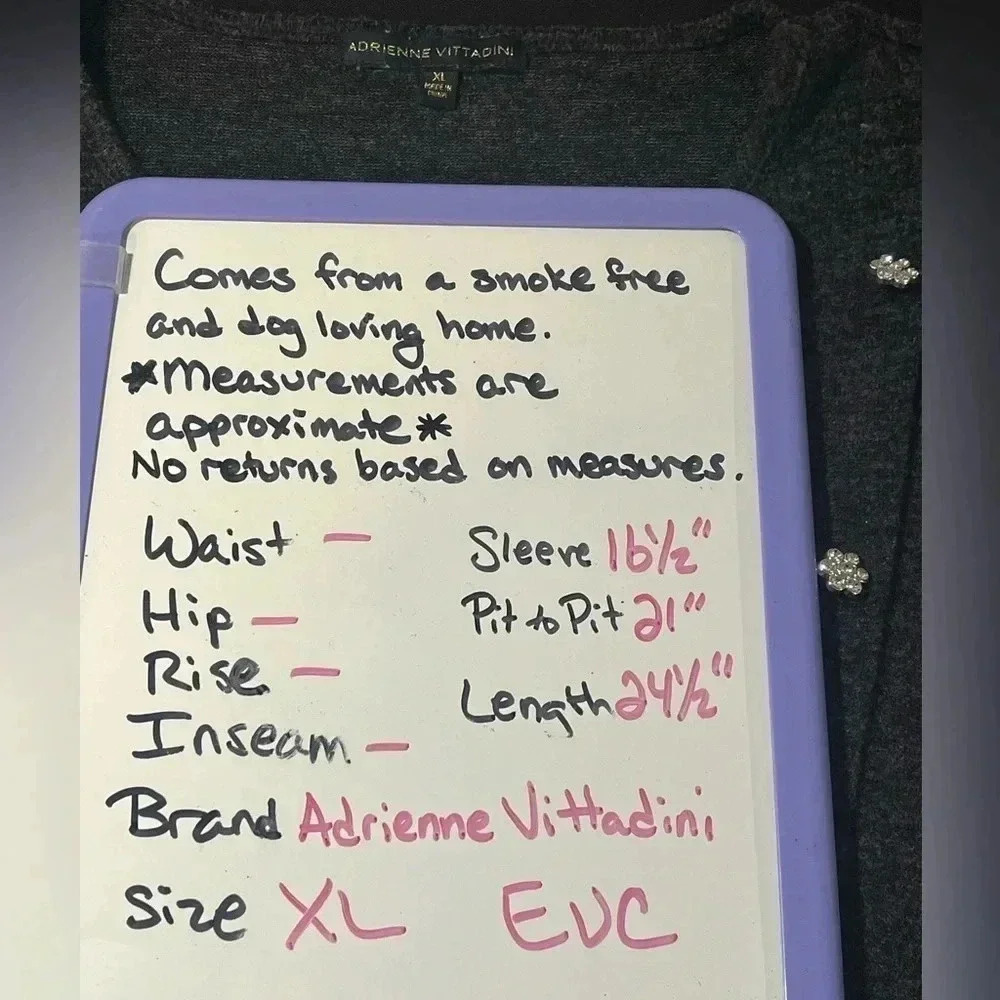 ADRIENNE VITTADINI
XL
MADE IN
CHINA
Comes from a smoke free
and dog loving home.
*Measurements are
approximate*
No returns based on measures.
Waist —
Hip —
Rise —
Inseam —
Sleeve 16½"
Pit to Pit 21"
Length 24½"
Brand Adrienne Vittadini
Size XL EUC